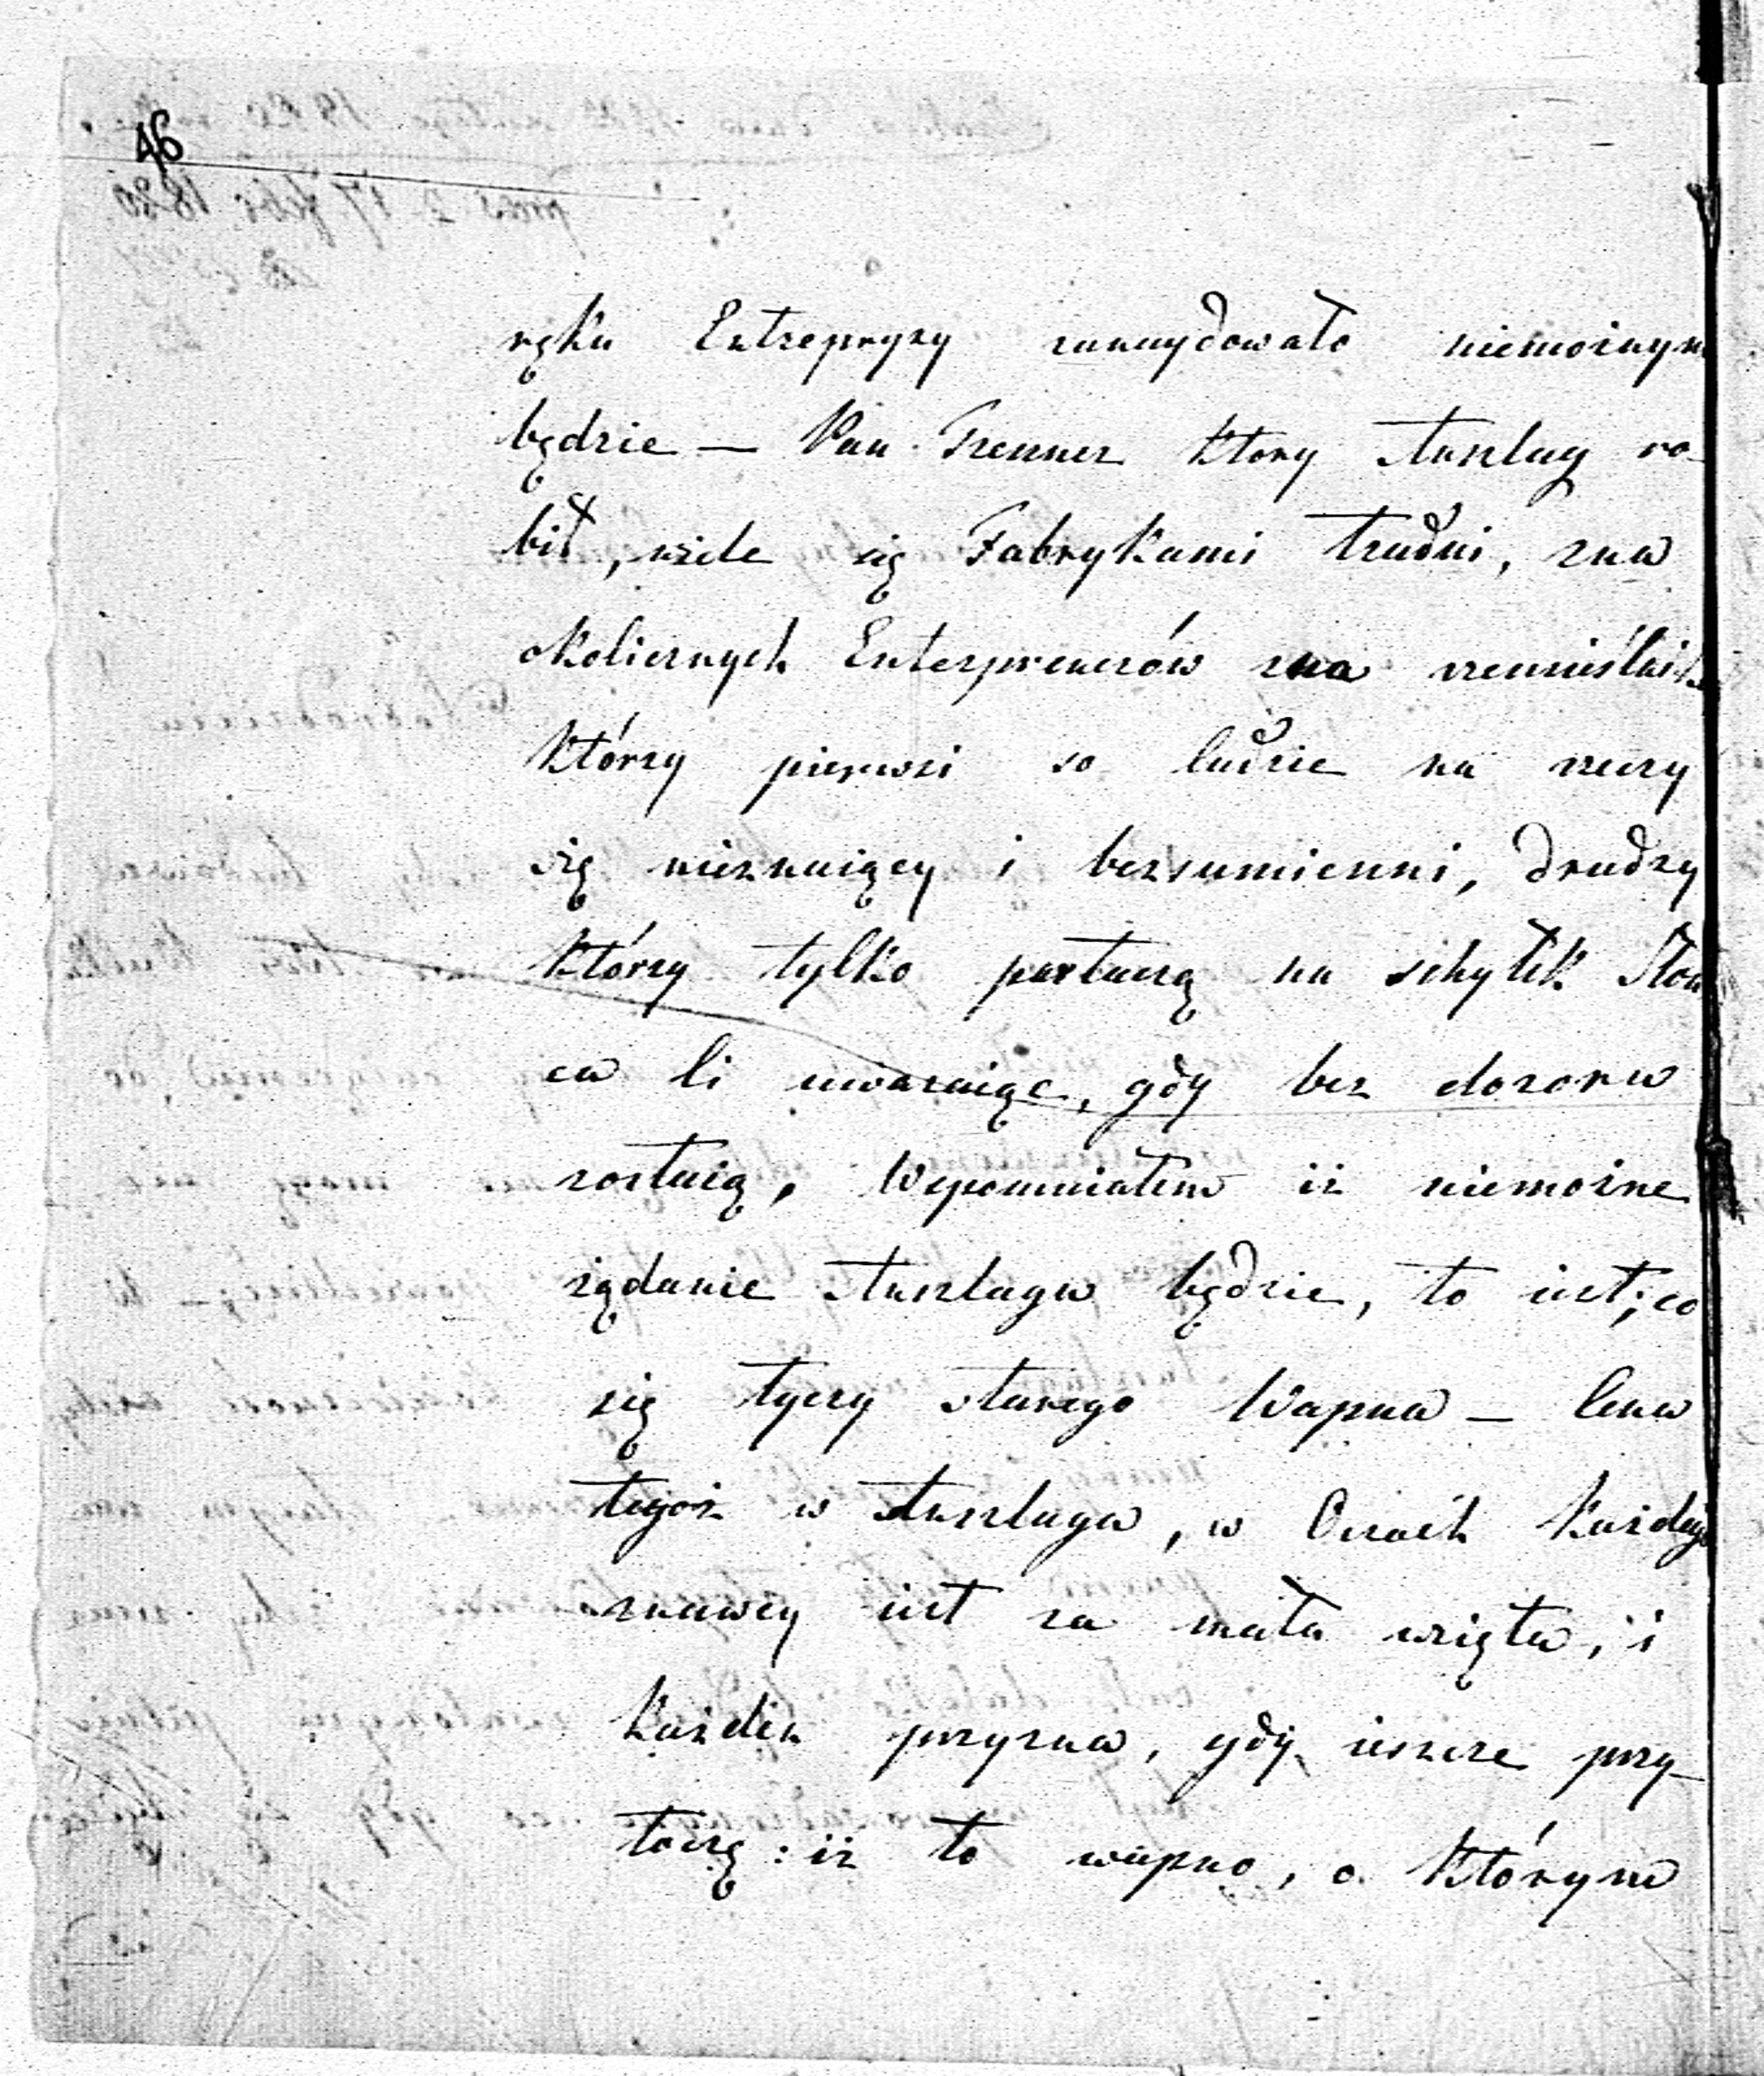 46
ręku Entrepryzy znaaydowało niemożnym
będzie — Pan Trenner ktory Anszlag ro-
bił, wiele się Fabrykami trudni, zna
okolicznych Enterprenerów zna rzemieślnik
którzy pierwsi so ludzie na rzeczy
się nieznaiący i bezsumienni, drudzy
którzy tylko partaczą na schyłek Słon
ca li uważaiąc, gdy bez dozoru
zostaią, Wspomniałem iż niemożne
żądanie Anszlagu będzie, to iest; co
się tyczy starego Wapna — Cena
tegoż w Anszlagu, w Oczach każdego
znawcy iest za mała wzięta, i
każden przyzna, gdy ieszcze przy-
toczę: iż to wapno, o którym